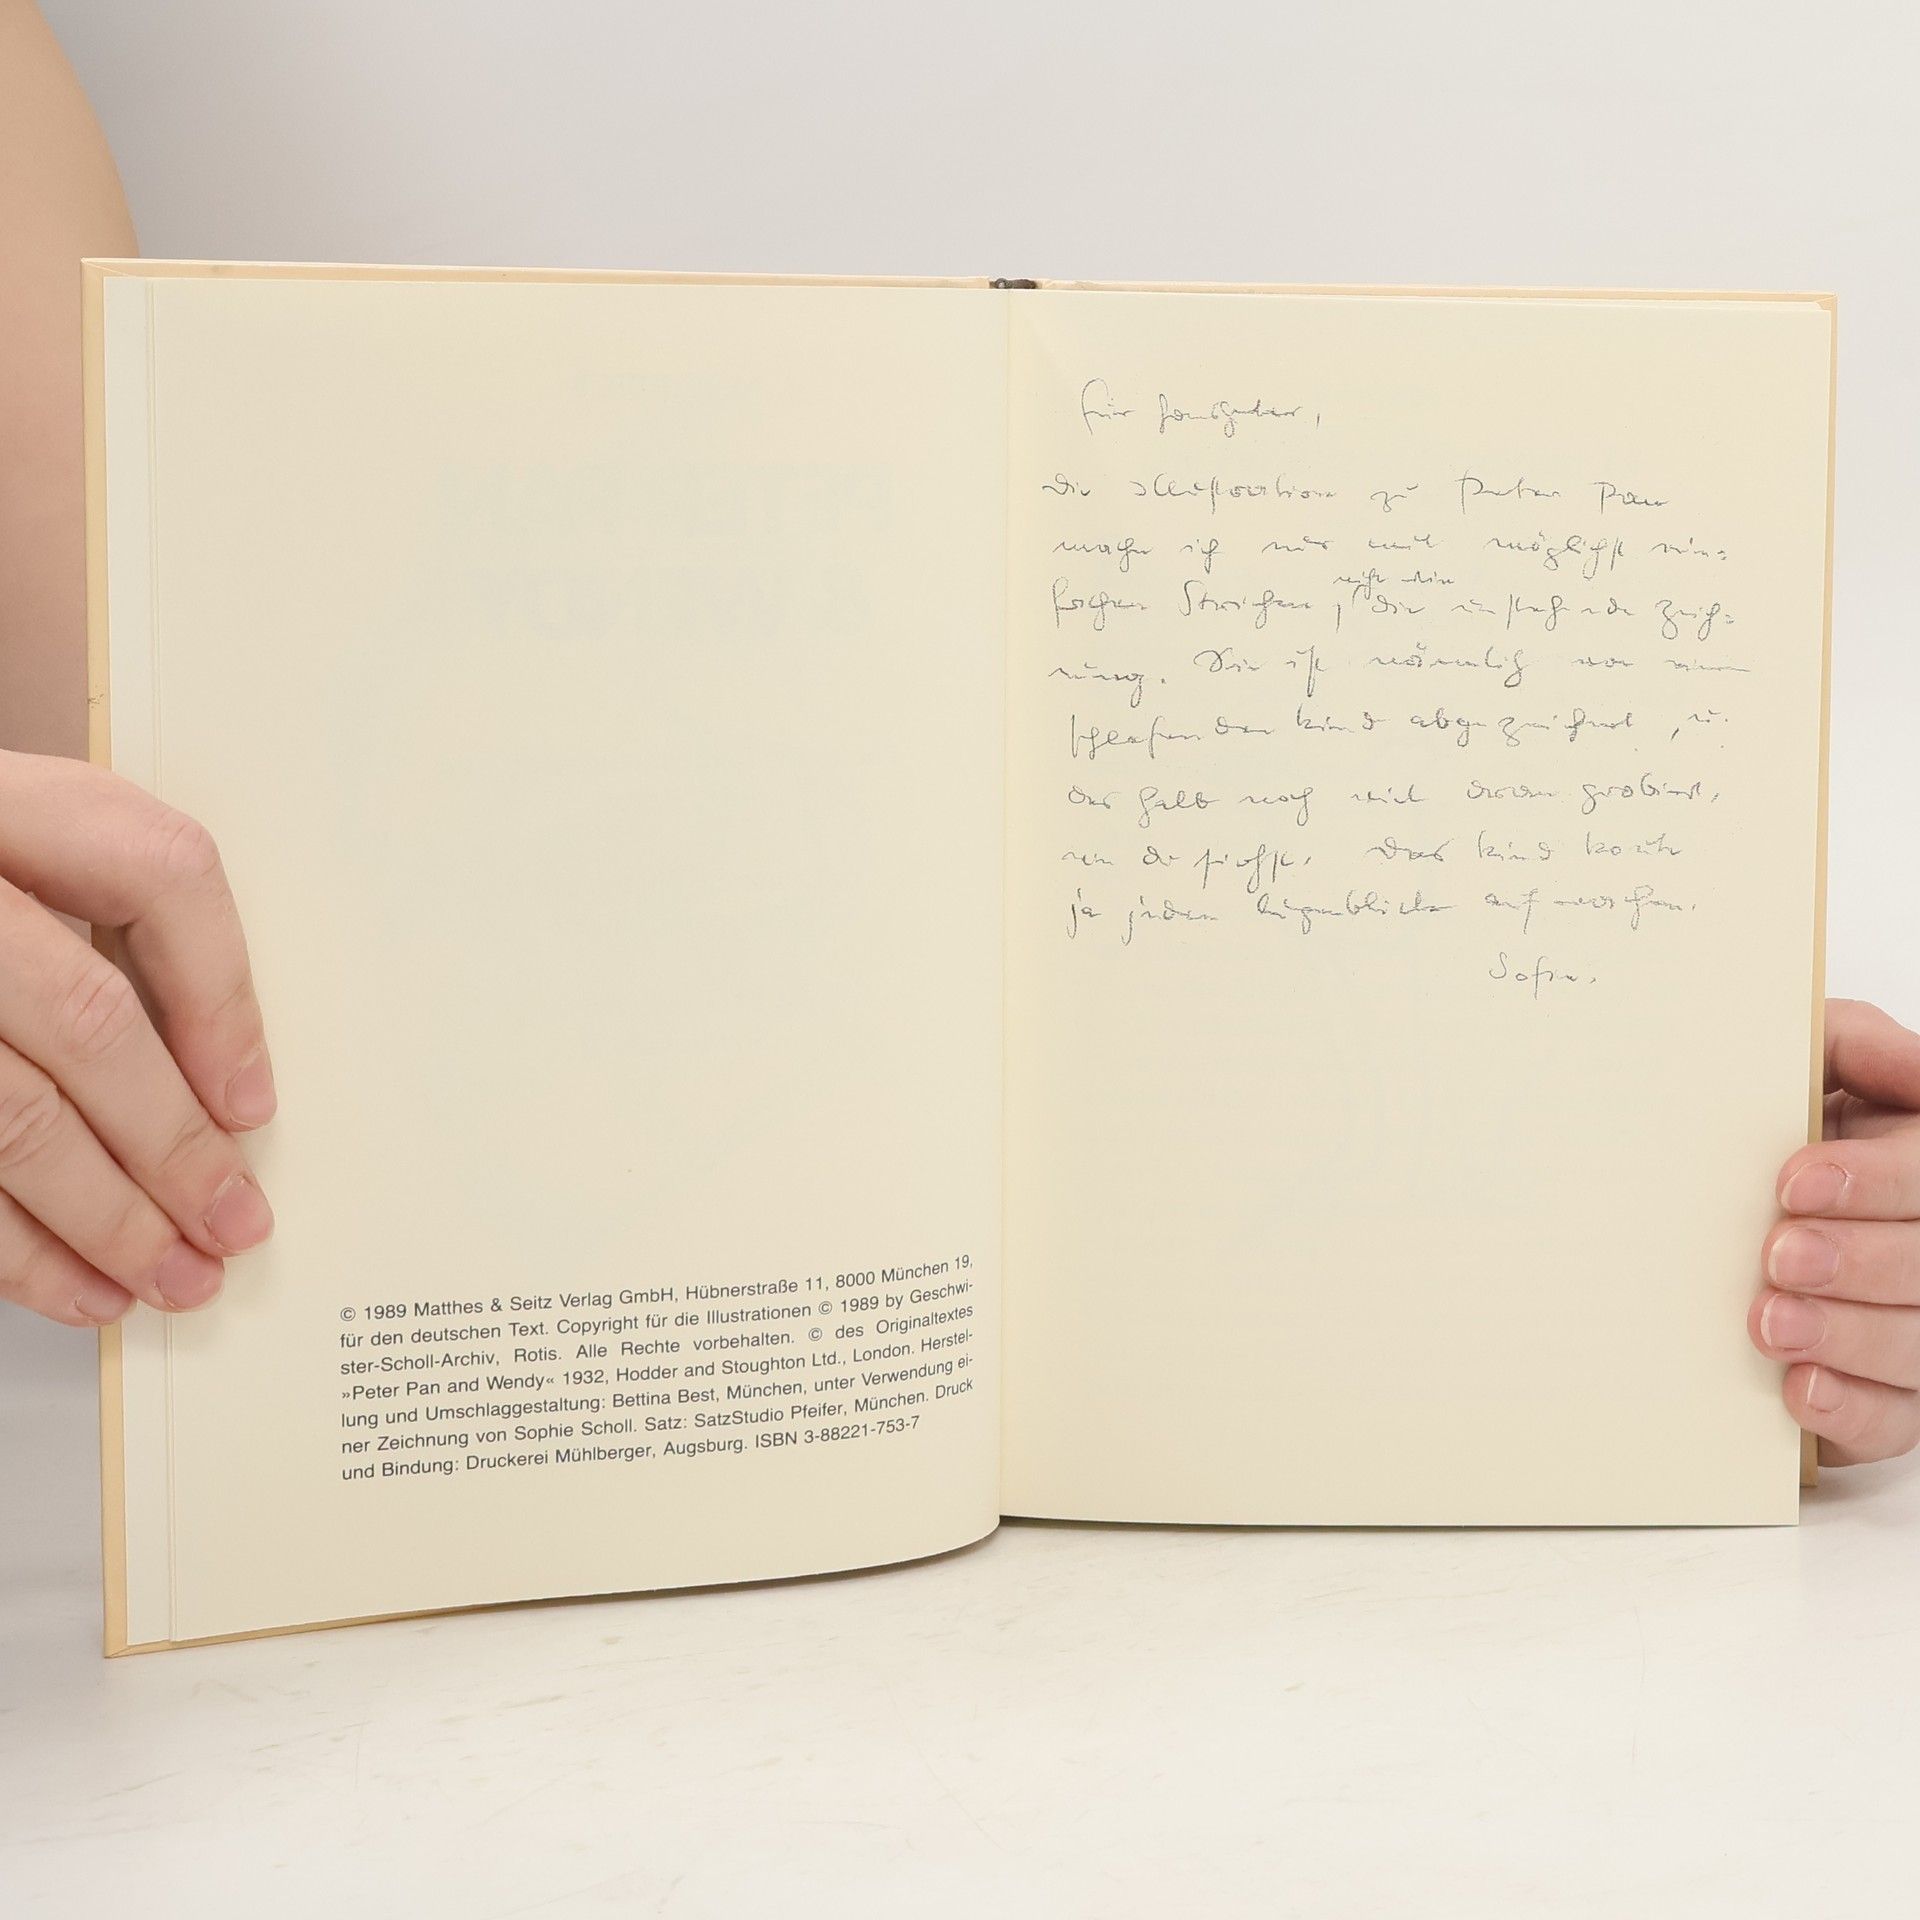 © 1989 Matthes & Seitz Verlag GmbH, Hübnerstraße 11, 8000 München 19,
für den deutschen Text. Copyright für die Illustrationen © 1989 by Geschwi-
ster-Scholl-Archiv, Rotis. Alle Rechte vorbehalten. © des Originaltextes
»Peter Pan and Wendy« 1932, Hodder and Stoughton Ltd., London. Herstel-
lung und Umschlaggestaltung: Bettina Best, München, unter Verwendung ei-
ner Zeichnung von Sophie Scholl. Satz: SatzStudio Pfeifer, München. Druck
und Bindung: Druckerei Mühlberger, Augsburg. ISBN 3-88221-753-7
für
Die Illustration zu Peter Pan
mache ich nur mit möglichst ein=
fachen Strichen, nicht wie die untenstehende Zeich=
nung. Sie ist nämlich von einem
schlafenden Kind abgezeichnet, u.
deshalb noch viel daran probiert,
wie du siehst. Das Kind konnte
ja jeden Augenblick aufwachen.
Sofie.